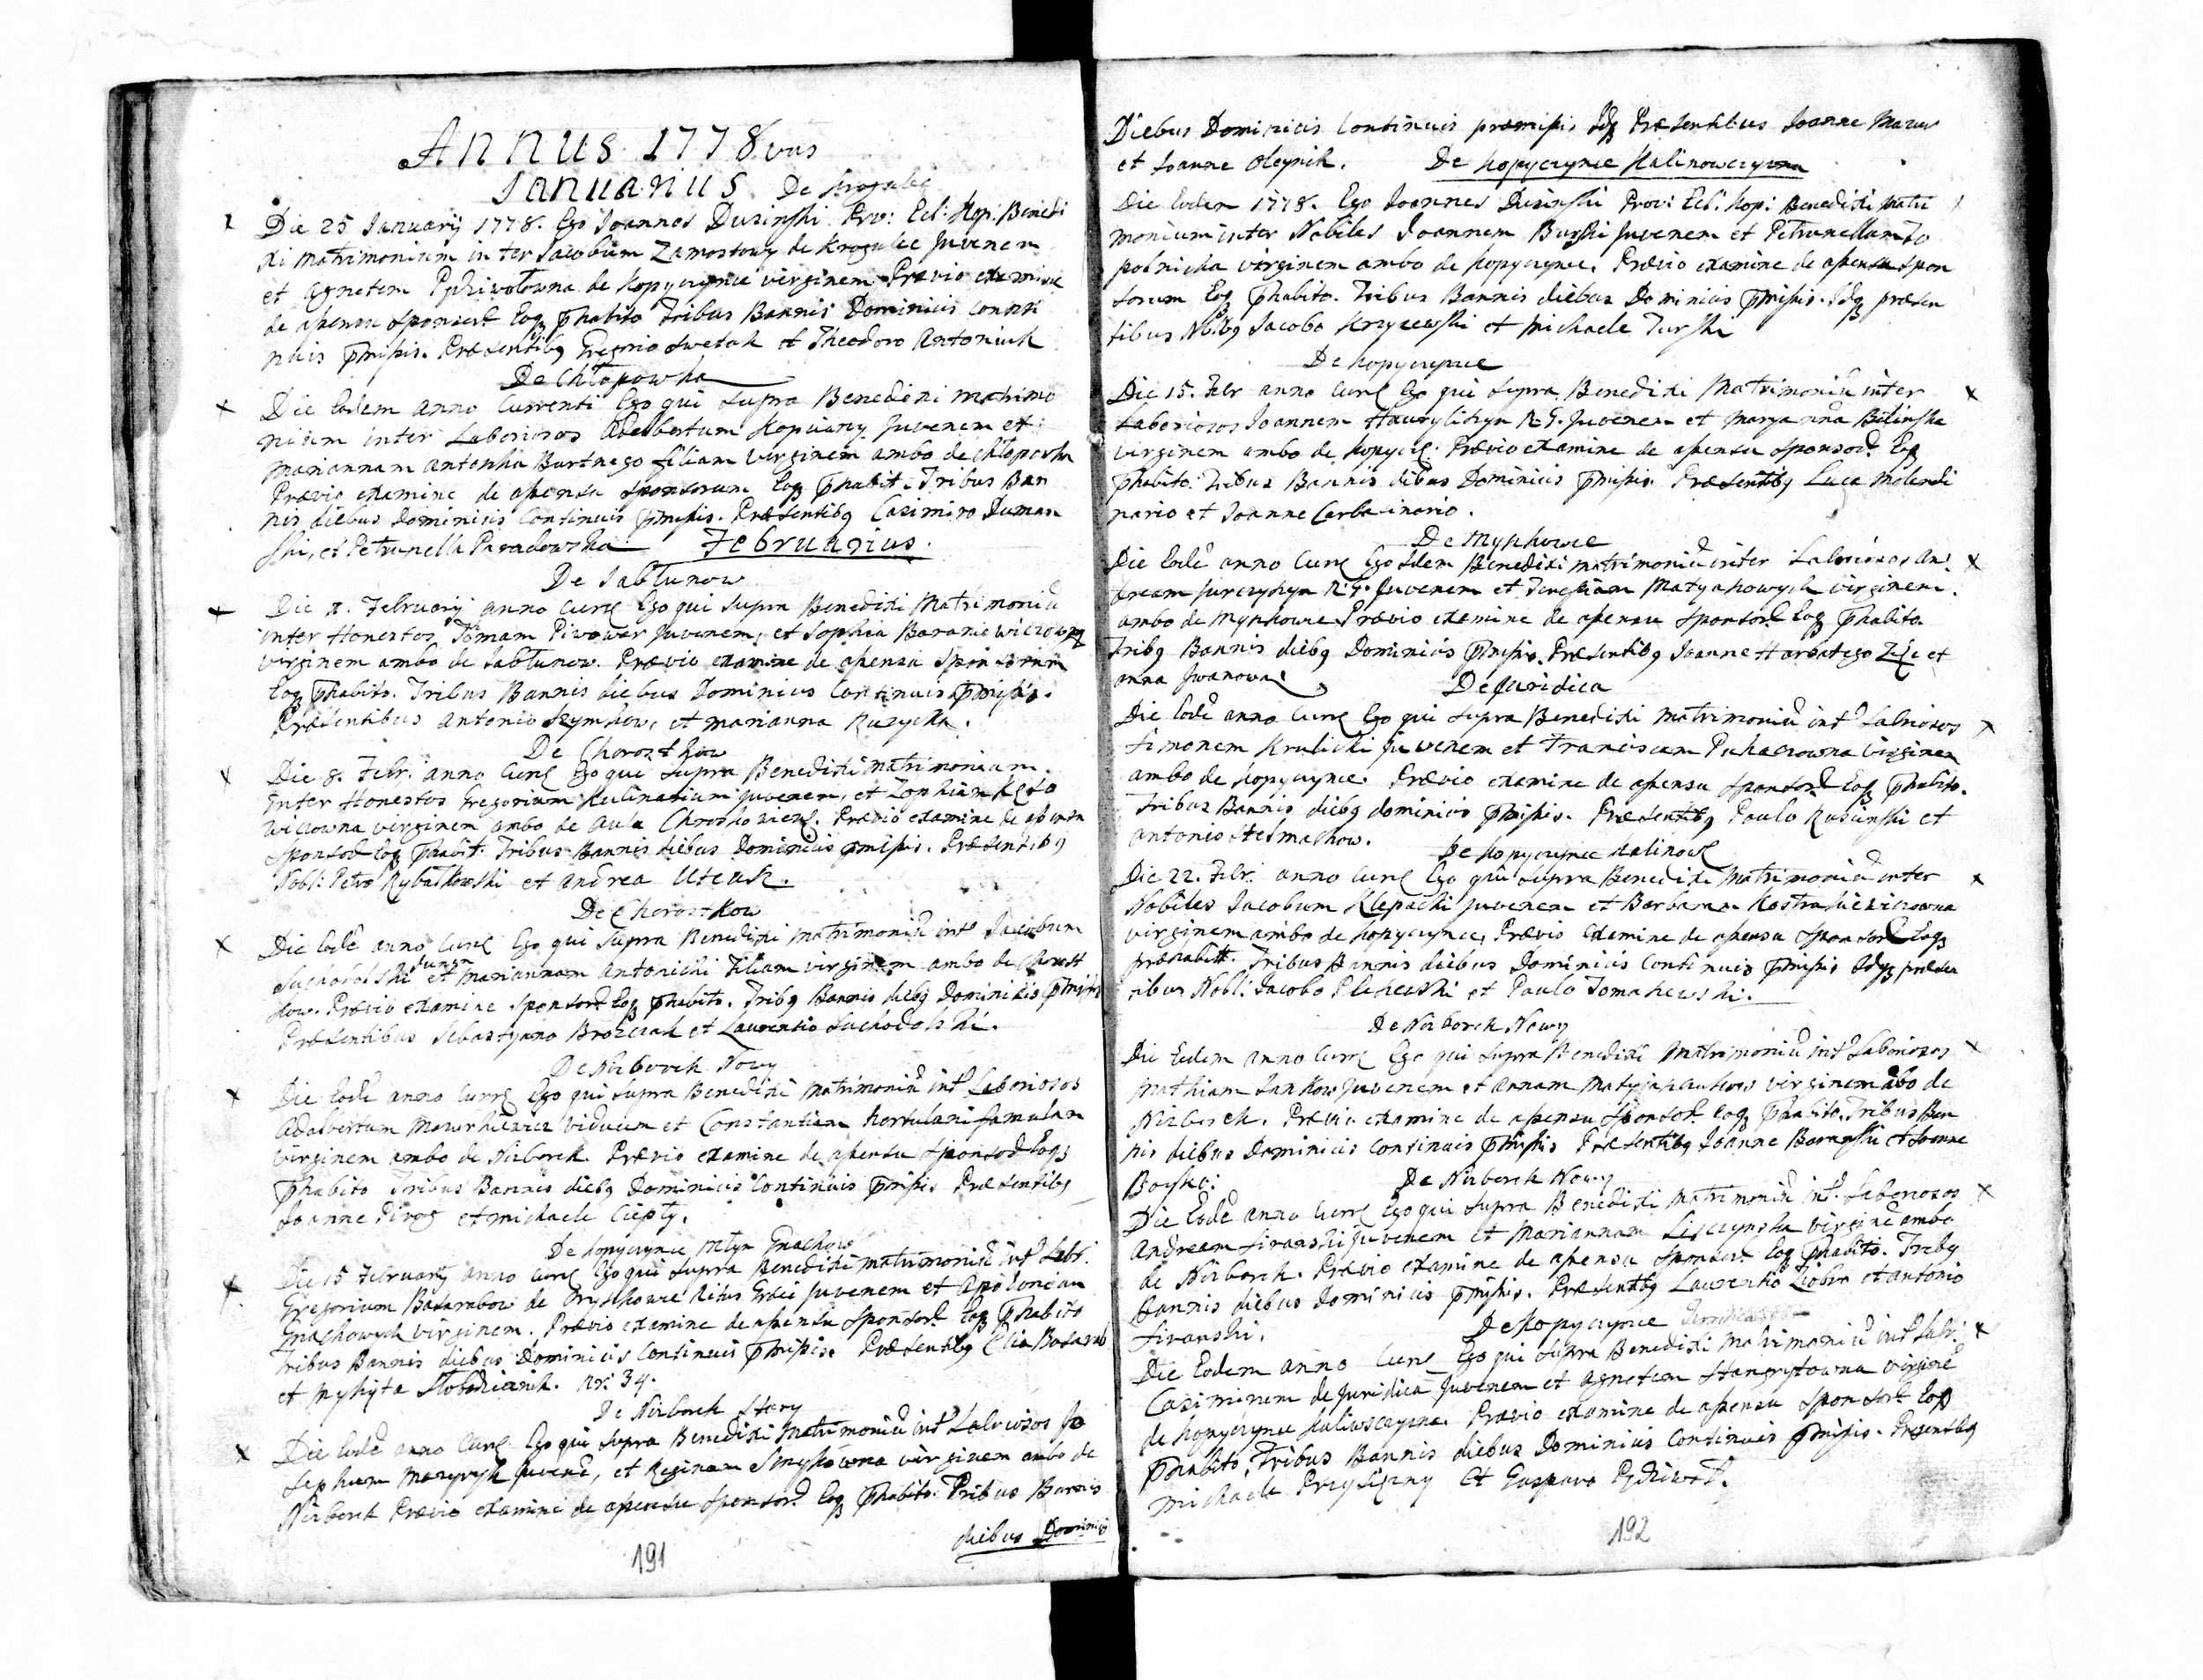 Annus 1778vus
Januarius De Krogulec
Die 25 Januarij 1778. Ego Joannes Dusinski Prv: Ecl: Kop: Benedi
xi Matrimonium inter Jacobum Zamostowy de Krogulec Juvenem
et Agnetem Pędziwołowna de Kopyczynce virginem Prævio examine
de apensu Sponsorū Eoqȝ p̄habito Tribus Bannis Dominicis conti
nuis p̄missis. Præsentibȝ Gregorio Swetak et Theodoro Antoniuk
De Chłopowka
Die Eodem anno Currenti Ego qui Supra Benedixi matrimo
nium inter Laboriosos Adelbertum Kopciany Juvenem et
Mariannam Antoszka Burtnego filiam virginem ambo de Chłopowka
Prævio examine de apensu Sponsorum Eoqȝ p̄habit. Tribus Ban
nis diebus Dominicis Continuis p̄missis. Præsentibȝ Casimiro Duman
ski, et Petrunella Paradowska Februarius.
De Jabłunow
Die 1. Februarij anno Curē Ego qui Supra Benedixi Matrimoniū
inter Honestos Tomam Piwowar Juvenem, et Sophia Baraniewiczowną
virginem ambo de Jabłunow. Prævio examine de apensu Sponsorum
Eoqȝ p̄habito. Tribus Bannis diebus Dominicis Continuis p̄missis.
Præsentibus Antonio Szymkow, et Marianna Ruzycka.
De Chorostkow
Die 8. Febr. anno Curē Ego qui Supra Benedixi Matrimonium
Inter Honestos Gregorium Kulinarium Juvenem, et Zophiam
wiczowna virginem ambo de Aula Prævio examine de apensu
Sponsorū Eoqȝ p̄habit. Tribus Bannis diebus Dominicis p̄missis. Præsentibȝ
Nobl: Petro Rybałkowski et Andrea
De Chorostkow
Die Eodē anno Curē Ego qui Supra Benedixi Matrimoniū intē Jacobum
Suchodolski Juven et Mariannam Antonicki Filiam virginem ambo de Chorost
kow. Prævio examine Sponsorū Eoqȝ p̄habito. Tribȝ Bannis diebȝ Dominicis p̄missis
Præsentibus Sebastyano Brozciak et Laurentio Suchodolski.
De Nirborek Nowy
Die Eodē anno Currē Ego qui Supra Benedixi Matrimoniū intē Laboriosos
Adalbertum viduum et Constantiam hortulani famulam
virginem ambo de Nirborek. Prævio examine de apensu Sponsorū Eoqȝ
p̄habito Tribus Bannis diebȝ Dominicis Continuis p̄missis Præsentibȝ
Joanne Pirog et Michaele Ciepły.
De Kopyczynce Młyn Gnachow
Die 15 Februarij anno Curē Ego qui Supra Benedixi Matrimoniū intē Labr.
Gregorium Basarabow de Myszkowce Ritus Græci Juvenem et Apoloniam
Gnachowych virginem. Prævio examine de apensu Sponsorū Eoqȝ p̄habito
Tribus Bannis diebus Dominicis Continuis p̄missis. Præsentibȝ Elia Basarab
et Mykyta Słobodzianik. Nr: 34.
De Nirborek Stary
Die Eodē anno Curē. Ego qui Supra Benedixi Matrimoniū intē Laboriosos Jo
sephum Mazuryk Juvenē, et Reginam Smykowna virginem ambo de
Nirborek Prævio examine de apensu Sponsorū Eoqȝ p̄habito. Tribus Bannis
diebus Dominici
191
Diebus Dominicis Continuis præmissis Idqȝ Præsentibus Joanne Mazur
et Joanne Oleynik. De Kopyczynce Kalinowczyzna
Die Eodem 1778. Ego Joannes Dusinski Prov: Ecl: Kop: Benedixi Matri
monium inter Nobiles Joannem Burski Juvenem et Petrunellam To
polnicka virginem ambo de Kopyczynce. Prævio examine de apensu Spon
sorum Eoqȝ p̄habito. Tribus Bannis diebus Dominicis p̄missis. Idqȝ præsen
tibus Nblbȝ Jacobo Krzyzewski et Michaele Turski
De Kopyczynce
Die 15. Febr anno Curē Ego qui Supra Benedixi Matrimoniū inter
Laboriosos Joannem Hawryliszyn R. G. Juvenem et Maryanna Bilinska
virginem ambo de Kopyczē. Prævio examine de apensu Sponsorū Eoqȝ
p̄habito. Tribus Bannis diebus Dominicis p̄missis. Præsentibȝ Luca Molendi
nario et Joanne Carbainario.
De Myszkowce
Die Eodē anno Curē Ego Idem Benedixi Matrimoniū inter Laboriosos An
dream Jurczyszyn R. G. Juvenem et Teressiam Matyakowych virginem.
ambo de Myszkowce Prævio examine de apensu Sponsorū Eoqȝ p̄habito
Tribȝ Bannis diebȝ Dominicis p̄missis. Præsentibȝ Joanne Harbatego Zięc et
Anna Iwanowa
De Juridica
Die Eodē anno Curē Ego qui Supra Benedixi Matrimoniū intē Laboriosos
Simonem Krulicki Juvenem et Franciscam Puhaczowna virginem
ambo de Kopyczynce. Prævio examine de apensu Sponsorū Eoqȝ p̄habito.
Tribus Bannis diebȝ Dominicis p̄missis. Præsentibȝ Paulo Rusinski et
Antonio Stelmachow. De Kopyczynce Kalinowē
Die 22. Febr. anno Curē Ego qui Supra Benedixi Matrimoniū inter
Nobiles Jacobum Klepacki Juvenem et Barbaram Kostrakiewiczowna
virginem ambo de Kopyczynce, Prævio examine de apensu Sponsorū Eoqȝ
præhabitt. Tribus Bannis diebus Dominicis Continuis p̄missis Idqȝ præsen
tibus Nobl: Jacobo et Paulo Tomaszewski.
De Nirborek Nowy
Die Eodem anno Curē Ego qui Supra Benedixi Matrimoniū intē Laboriosos
Mathiam Jankow Juvenem et Annam virginem ābo de
Nirborek. Prævio examine de apensu Sponsorū Eoqȝ p̄habito. Tribus Ban
nis diebus Dominicis Continuis p̄missis Præsentibȝ Joanne Baranski et Joanne
Boyko: De Nirborek Nowy
Die Eodē anno Curē Ego qui Supra Benedixi Matrimoniū intē. Laboriosos
Andream Siranski Juvenem et Mariannam Lisczynska virginē ambo
de Nirborek. Prævio examine de apensu Sponsorū Eoqȝ p̄habito. Tribȝ
Bannis diebus Dominicis p̄missis. Præsentibȝ Laurentio Ziobro et Antonio
Siranski. De Kopyczynce
Die Eodem anno Curē Ego qui Supra Benedixi Matrimoniū intē Labr.
Casimirum de Juridica Juvenem et Agnetem virginē
de Kopyczynce Prævio examine de apensu Sponsorū Eoqȝ
p̄habito, Tribus Bannis diebus Dominicis Continuis p̄missis. Præsentibȝ
Michaele Przysiężny et Gaspara Pędziwoł.
192